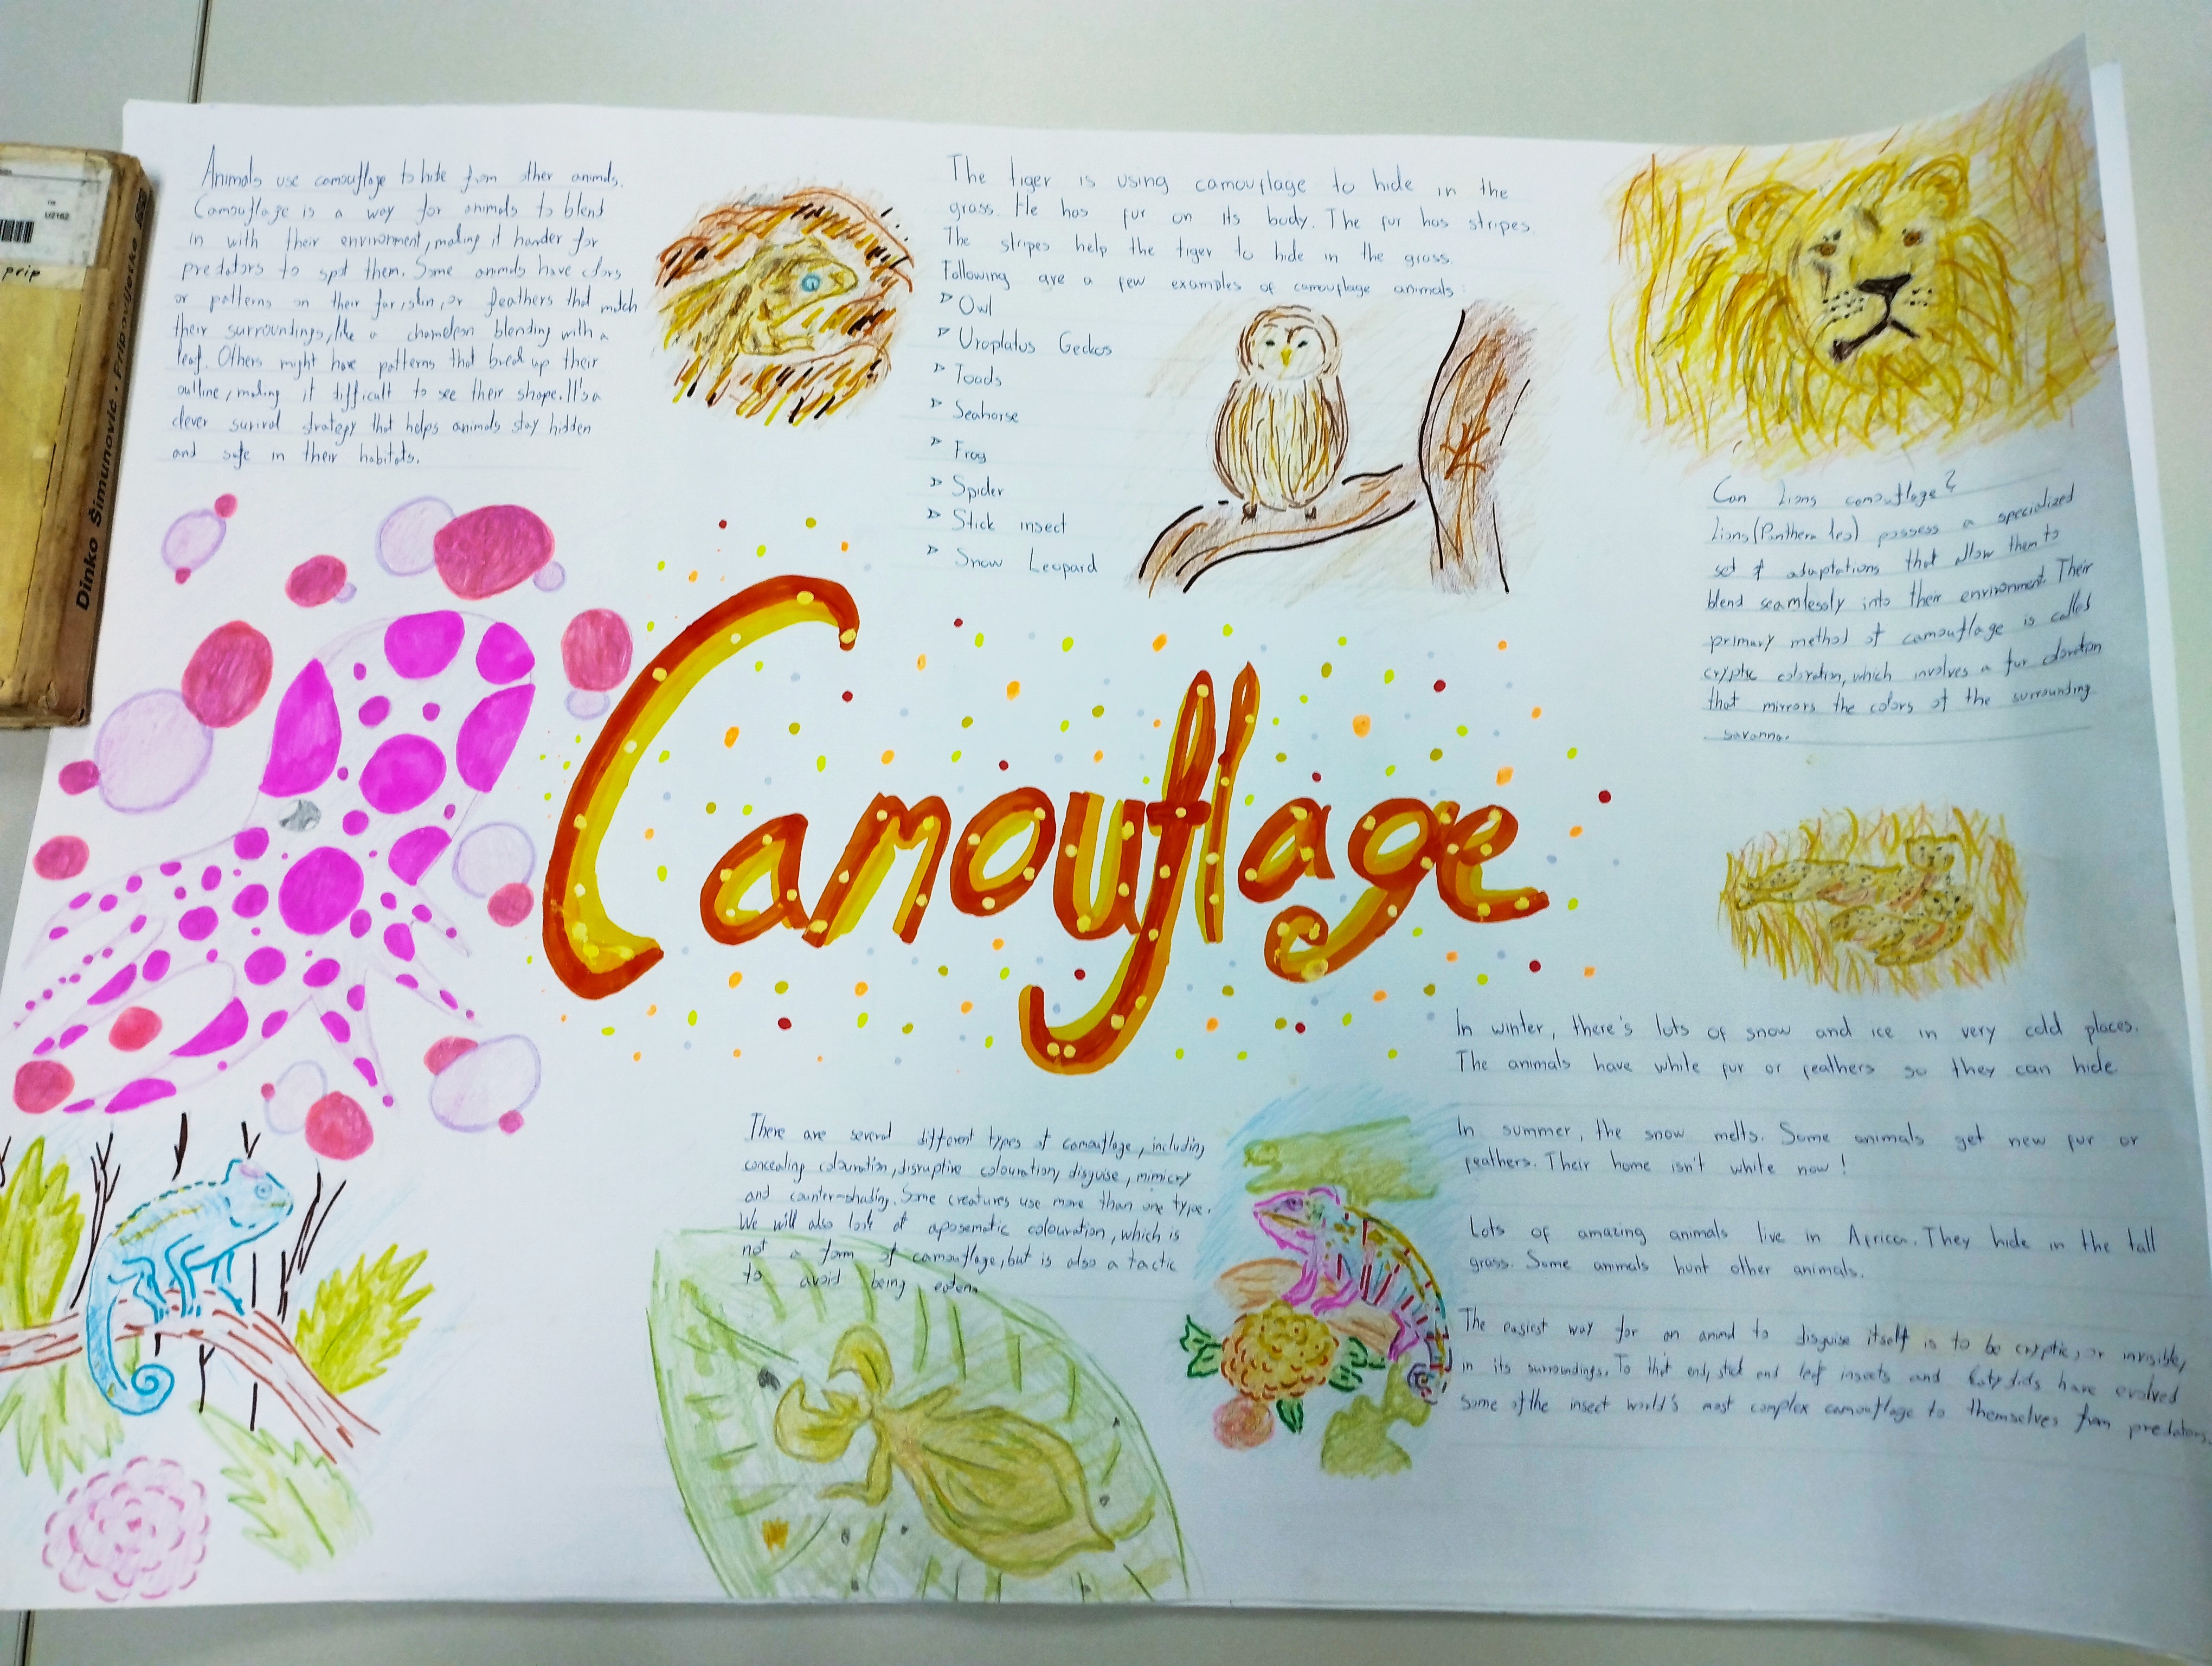 Dinko Šimunović • Pripovijetke
prip
Animals use camouflage to hide from other animals.
Camouflage is a way for animals to blend
in with their environment, making it harder for
predators to spot them. Some animals have colors
or patterns on their fur, skin, or feathers that match
their surroundings, like a chameleon blending with a
leaf. Others might have patterns that break up their
outline, making it difficult to see their shape. It's a
clever survival strategy that helps animals stay hidden
and safe in their habitats.
The tiger is using camouflage to hide in the
grass. He has fur on its body. The fur has stripes.
The stripes help the tiger to hide in the grass.
Following are a few examples of camouflage animals:
Owl
Uroplatus Geckos
Toads
Seahorse
Frog
Spider
Stick insect
Snow Leopard
Can Lions camouflage?
Lions (Panthera leo) possess a specialized
set of adaptations that allow them to
blend seamlessly into their environment. Their
primary method of camouflage is called
cryptic coloration, which involves a fur coloration
that mirrors the colors of the surrounding
savanna.
Camouflage
In winter, there's lots of snow and ice in very cold places.
The animals have while fur or feathers so they can hide.
In summer, the snow melts. Some animals get new fur or
feathers. Their home isn't white now!
Lots of amazing animals live in Africa. They hide in the tall
grass. Some animals hunt other animals.
The easiest way for an animal to disguise itself is to be cryptic, or invisible,
in its surroundings. To that end, stick and leaf insects and katydids have evolved
some of the insect world's most complex camouflage to themselves from predators.
There are several different types of camouflage, including
concealing colouration, disruptive colouration, disguise, mimicry
and counter-shading. Some creatures use more than one type.
We will also look at aposematic colouration, which is
not a form of camouflage, but is also a tactic
to avoid being eaten.